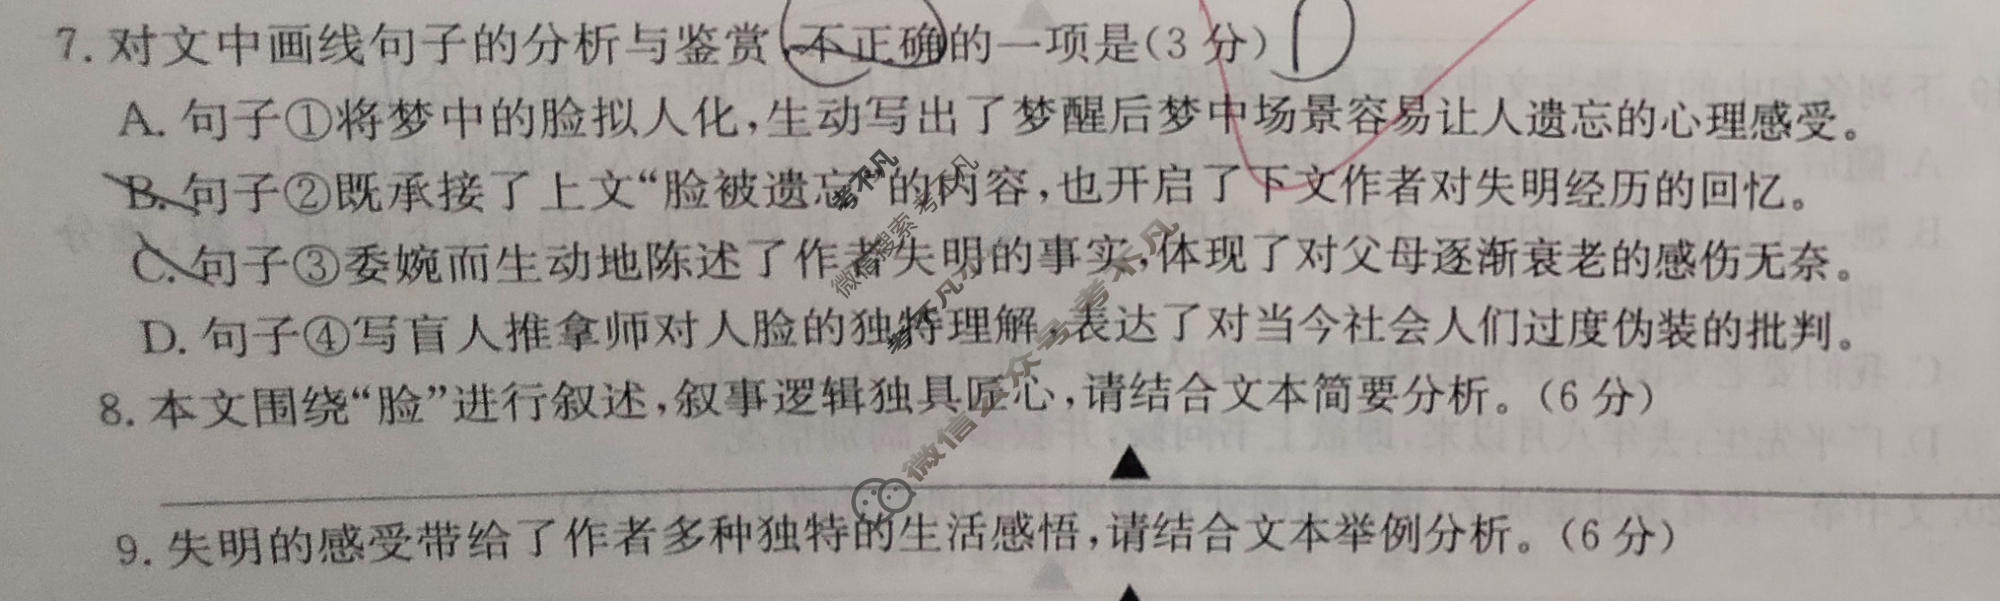 7. 对文中画线句子的分析与鉴赏不正确的一项是(3 分) D
A. 句子①将梦中的脸拟人化,生动写出了梦醒后梦中场景容易让人遗忘的心理感受。
B. 句子②既承接了上文“脸被遗忘”的内容,也开启了下文作者对失明经历的回忆。
C. 句子③委婉而生动地陈述了作者失明的事实,体现了对父母逐渐衰老的感伤无奈。
D. 句子④写盲人推拿师对人脸的独特理解,表达了对当今社会人们过度伪装的批判。
8. 本文围绕“脸”进行叙述,叙事逻辑独具匠心,请结合文本简要分析。(6 分)
9. 失明的感受带给了作者多种独特的生活感悟,请结合文本举例分析。(6 分)
考不凡
微信搜索 考不凡
考不凡
微信公众号 考不凡